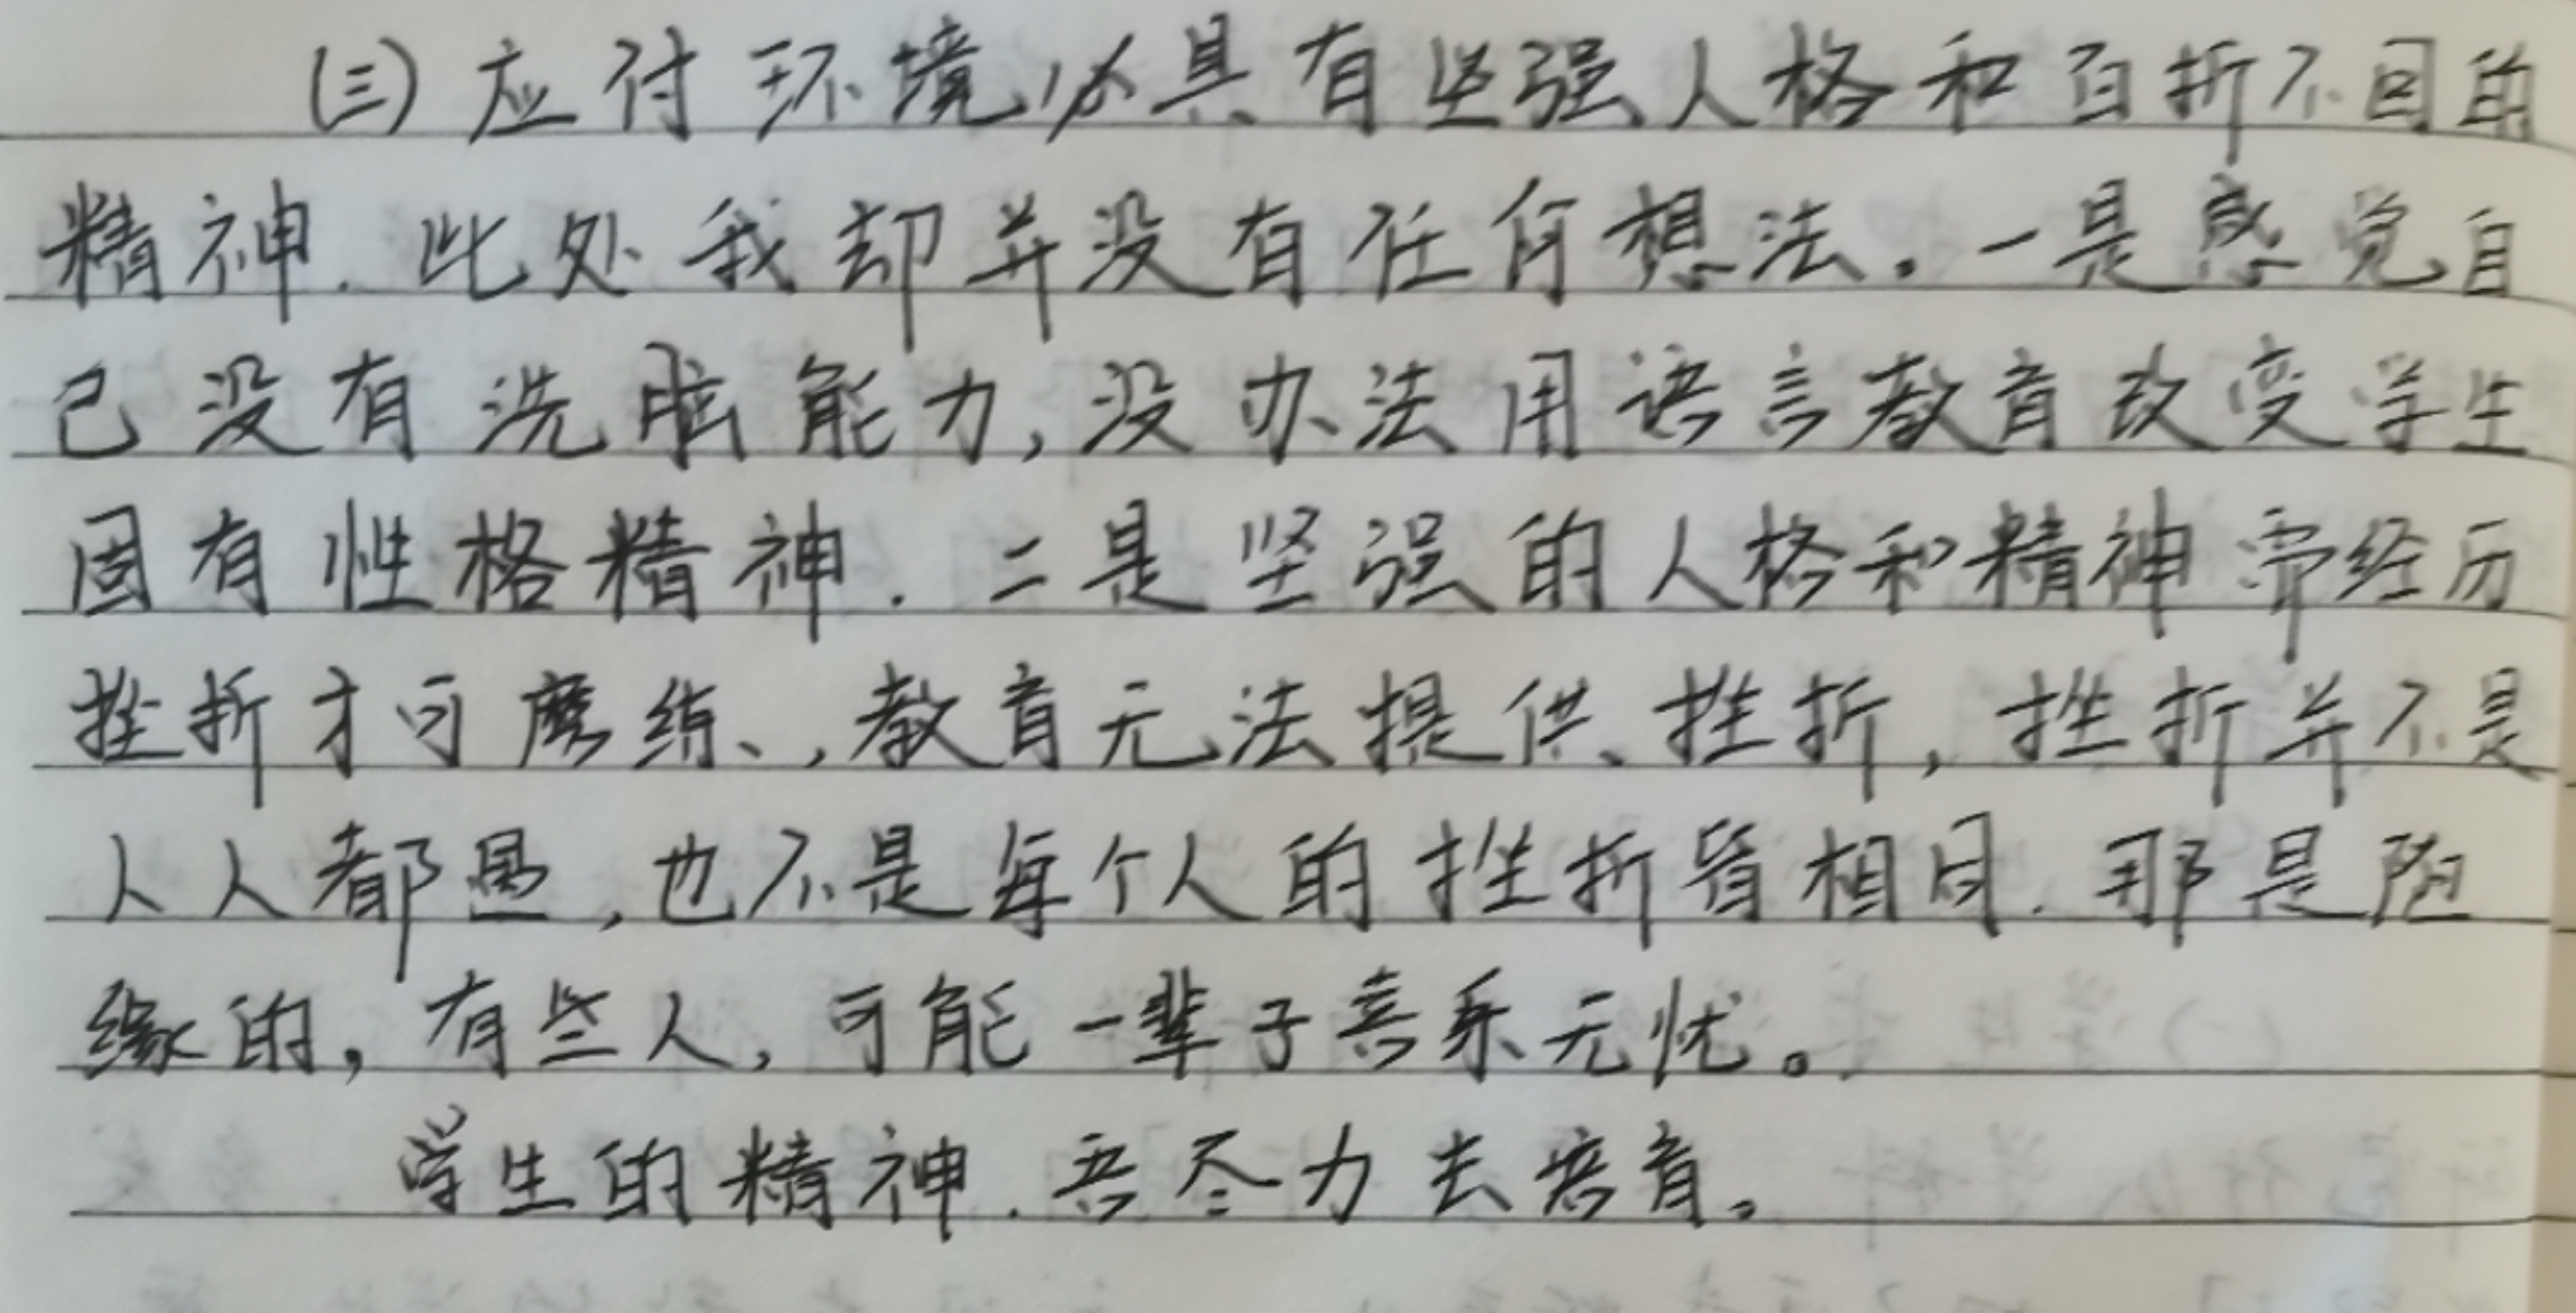 (三)应付环境必具有坚强人格和百折不回的
精神.此处我却并没有任何想法。一是感觉自
己没有洗脑能力,没办法用语言教育改变学生
固有性格精神.二是坚强的人格和精神需经历
挫折才可磨练、,教育无法提供、挫折,挫折并不是
人人都遇,也不是每个人的挫折皆相同.那是随
缘的,有些人,可能一辈子喜乐无忧。
学生的精神.吾尽力去培育。